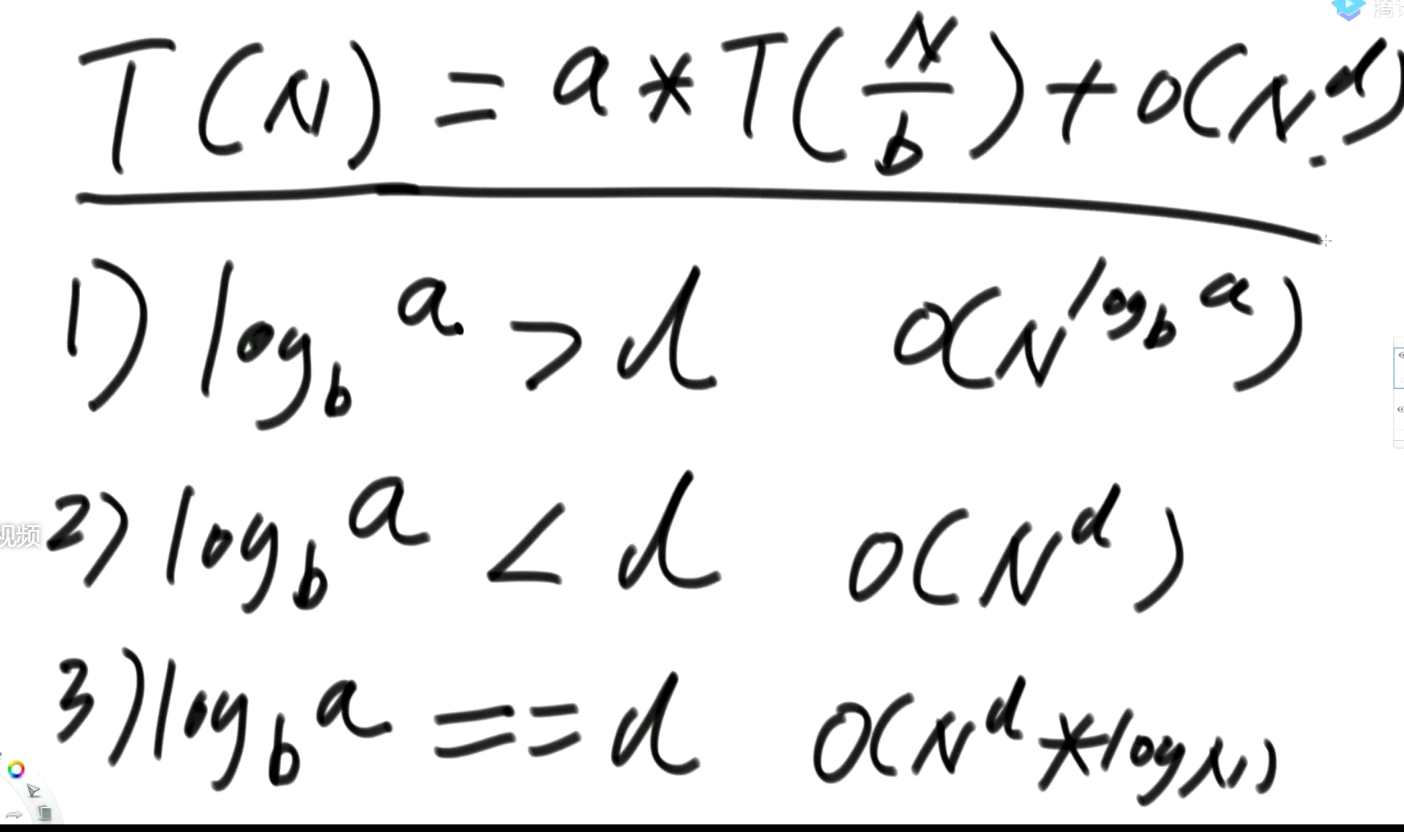 腾
T(N) = a * T(N/b) + O(N^d)
1) log_b a > d O(N^(log_b a))
视频
2) log_b a < d O(N^d)
3) log_b a == d O(N^d * logN)